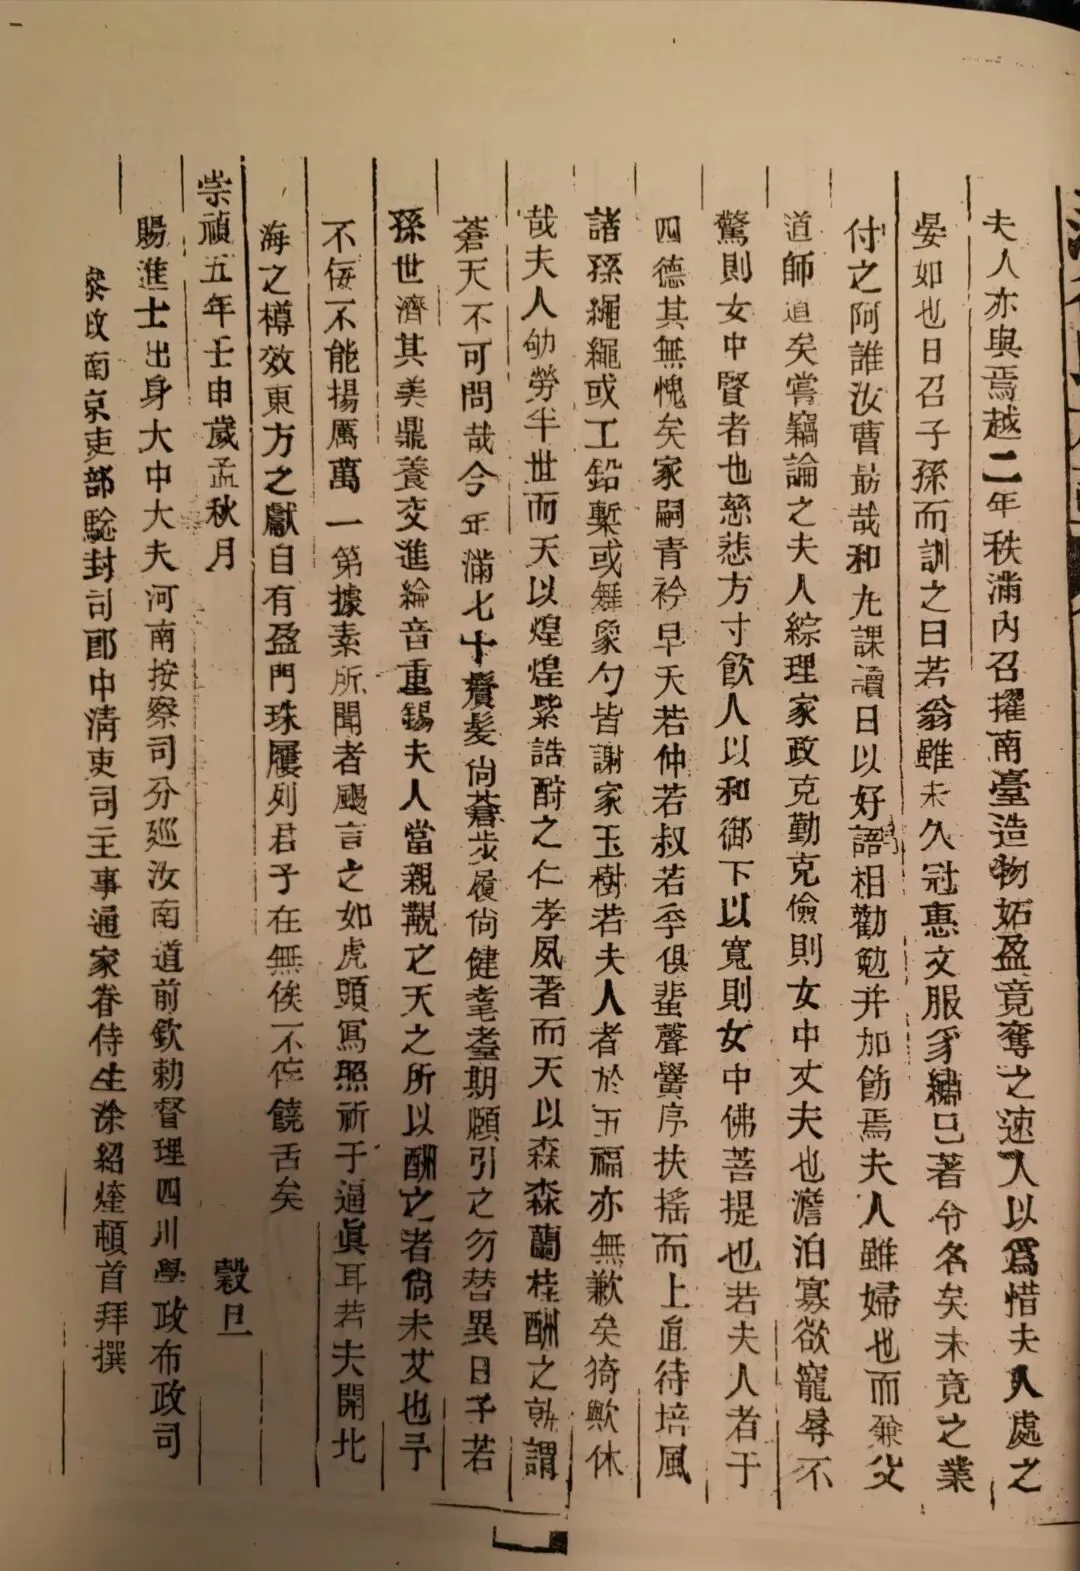 夫人亦與焉越二年秩滿內召擢南臺造物妬盈竟奪之速人以爲惜夫人處之
晏如也日召子孫而訓之曰若翁雖未久冠惠文服豸繡已著令名矣未竟之業
付之阿誰汝曹勗哉和丸課讀日以好語相勸勉并加飭焉夫人雖婦也而兼父
道師道矣嘗竊論之夫人綜理家政克勤克儉則女中丈夫也澹泊寡欲寵辱不
驚則女中賢者也慈悲方寸飲人以和御下以寬則女中佛菩提也若夫人者于
四德其無愧矣家嗣青衿早夭若仲若叔若季俱蜚聲黌序扶搖而上直待培風
諸孫繩繩或工鉛槧或舞象勺皆謝家玉樹若夫人者於五福亦無歉矣猗歟休
哉夫人劬勞半世而天以煌煌紫誥酧之仁孝夙著而天以森森蘭桂酬之孰謂
蒼天不可問哉今年滿七十鬢髮尙蒼步履尙健耄耋期頤引之勿替異日子若
孫世濟其美鼎養交進綸音重錫夫人當親覩之天之所以酬之者尙未艾也予
不佞不能揚厲萬一第據素所聞者颺言之如虎頭寫照祈于逼眞耳若夫開北
海之樽效東方之獻自有盈門珠履列君子在無俟不佞饒舌矣
崇禎五年壬申歲孟秋月穀旦
賜進士出身大中大夫河南按察司分廵汝南道前欽勅督理四川學政布政司
叅政南京吏部騐封司郎中淸吏司主事通家眷侍生涂紹煃頓首拜撰